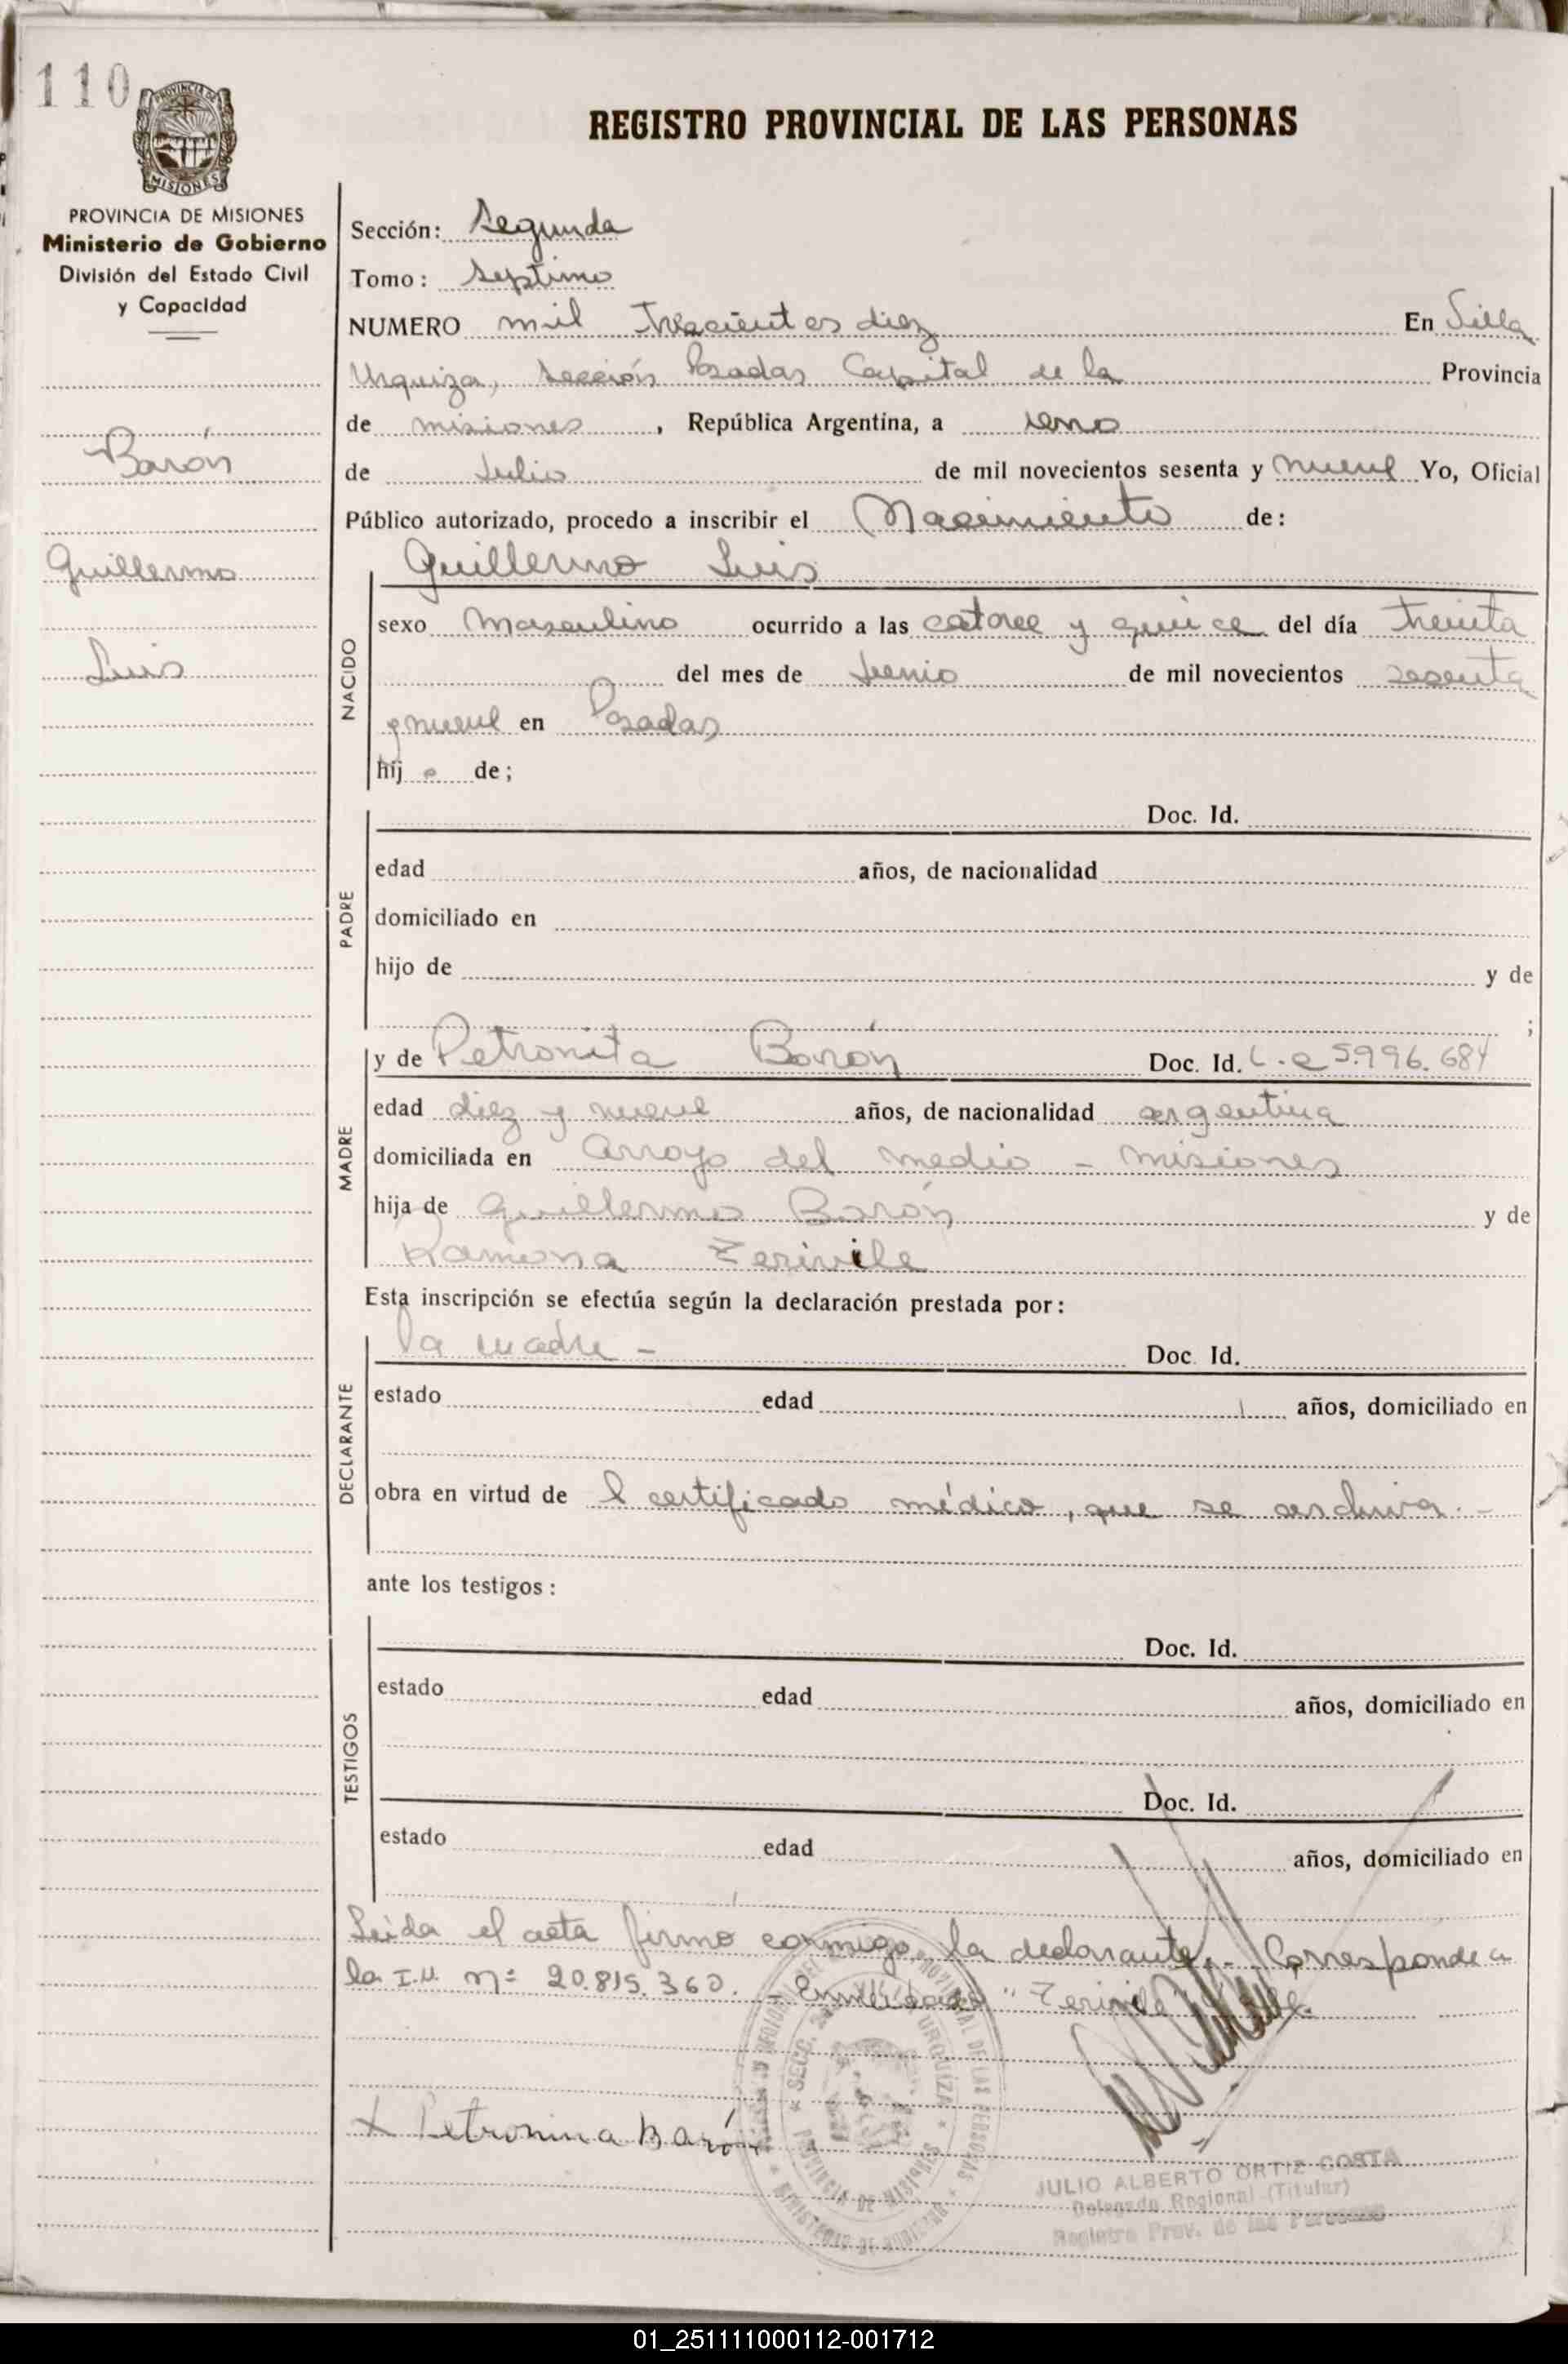 110
PROVINCIA DE MISIONES
REGISTRO PROVINCIAL DE LAS PERSONAS
PROVINCIA DE MISIONES
Ministerio de Gobierno
División del Estado Civil
y Capacidad
Barón
Guillermo
Luis
Sección: Segunda
Tomo: Septimo
NUMERO mil Trescientos diez En Villa
Urquiza, Sección Posadas Capital de la Provincia
de misiones, República Argentina, a uno
de Julio de mil novecientos sesenta y nueve Yo, Oficial
Público autorizado, procedo a inscribir el Nacimiento de:
NACIDO
Guillermo Luis
sexo Masculino ocurrido a las catorce y quince del día treinta
del mes de Junio de mil novecientos sesenta
y nueve en Posadas
hij o de;
PADRE
Doc. Id.
edad años, de nacionalidad
domiciliado en
hijo de y de
;
MADRE
y de Petronita Barón Doc. Id. L.C 5.996.684
edad diez y nueve años, de nacionalidad argentina
domiciliada en Arroyo del medio - Misiones
hija de Guillermo Barón y de
Ramona Zerivile
Esta inscripción se efectúa según la declaración prestada por:
DECLARANTE
la madre - Doc. Id.
estado edad años, domiciliado en
obra en virtud de l certificado médico, que se archiva.-
ante los testigos:
TESTIGOS
Doc. Id.
estado edad años, domiciliado en
Doc. Id.
estado edad años, domiciliado en
Leida el acta firmó conmigo, la declarante.- Corresponde a
la I.U. nº 20.815.360. - Enmendado "Zerivile" Vale.
x Petronina Barón
SECC. 2a URQUIZA
PROVINCIA DE MISIONES
MINISTERIO DE GOBIERNO
JULIO ALBERTO ORTIZ COSTA
Delegado Regional (Titular)
Registro Prov. de las Personas
01_251111000112-001712